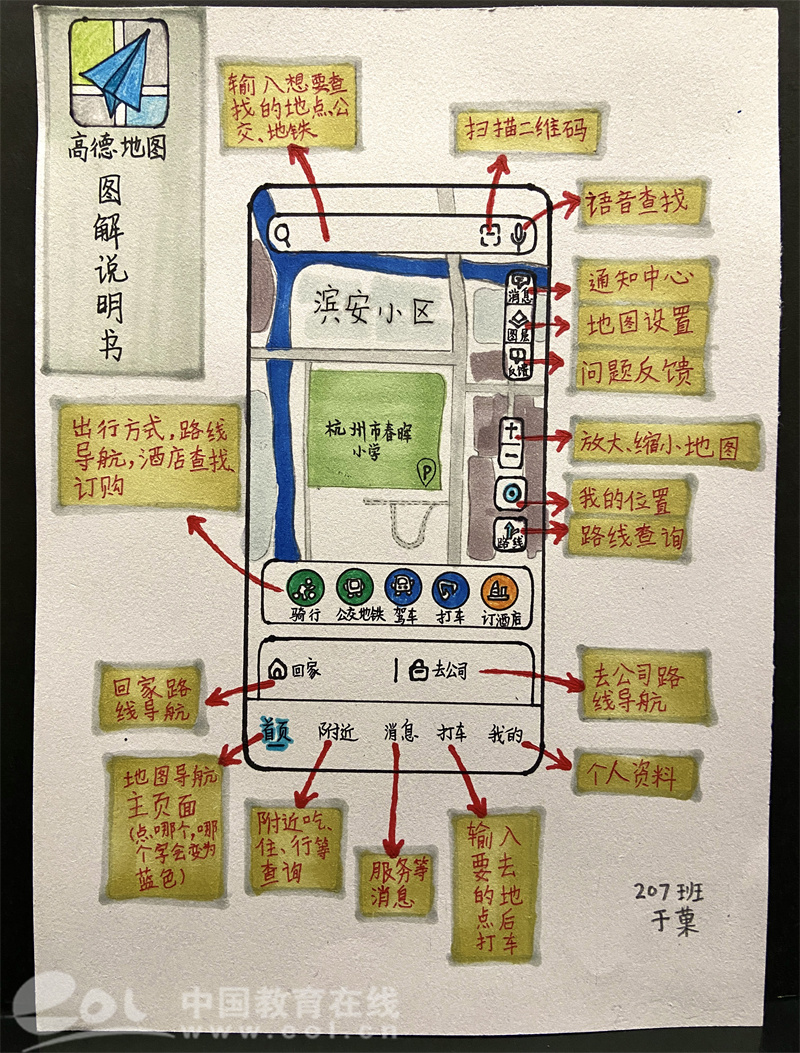 高德地图
图解说明书
输入想要查
找的地点、公
交、地铁
扫描二维码
语音查找
消息
通知中心
图层
地图设置
反馈
问题反馈
滨安小区
杭州市春晖
小学
P
出行方式,路线
导航,酒店查找、
订购
放大、缩小地图
我的位置
路线
路线查询
骑行
公交地铁
驾车
打车
订酒店
回家
去公司
回家路
线导航
去公司路
线导航
首页
附近
消息
打车
我的
地图导航
主页面
(点哪个,哪
个字会变为
蓝色)
附近吃、
住、行等
查询
服务等
消息
输入
要去
的地
点后
打车
个人资料
207班
于菓
eol 中国教育在线
www.eol.cn